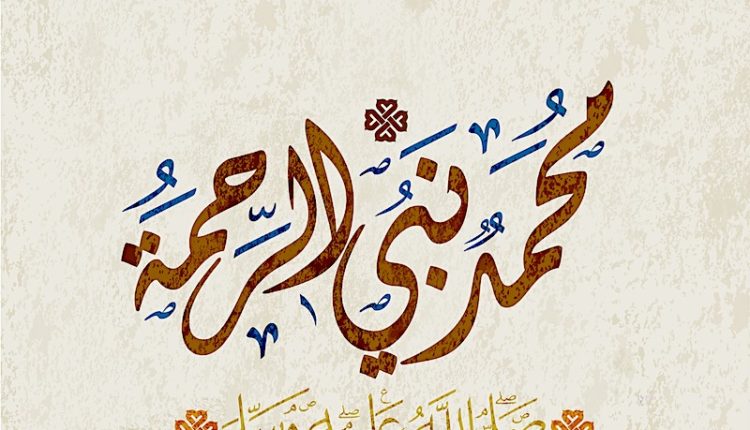 مُحَمَّدٌ نَبِيُّ الرَّحمَةِ
صَلَّى اللَّهُ عَلَيْهِ وَسَلَّمَ